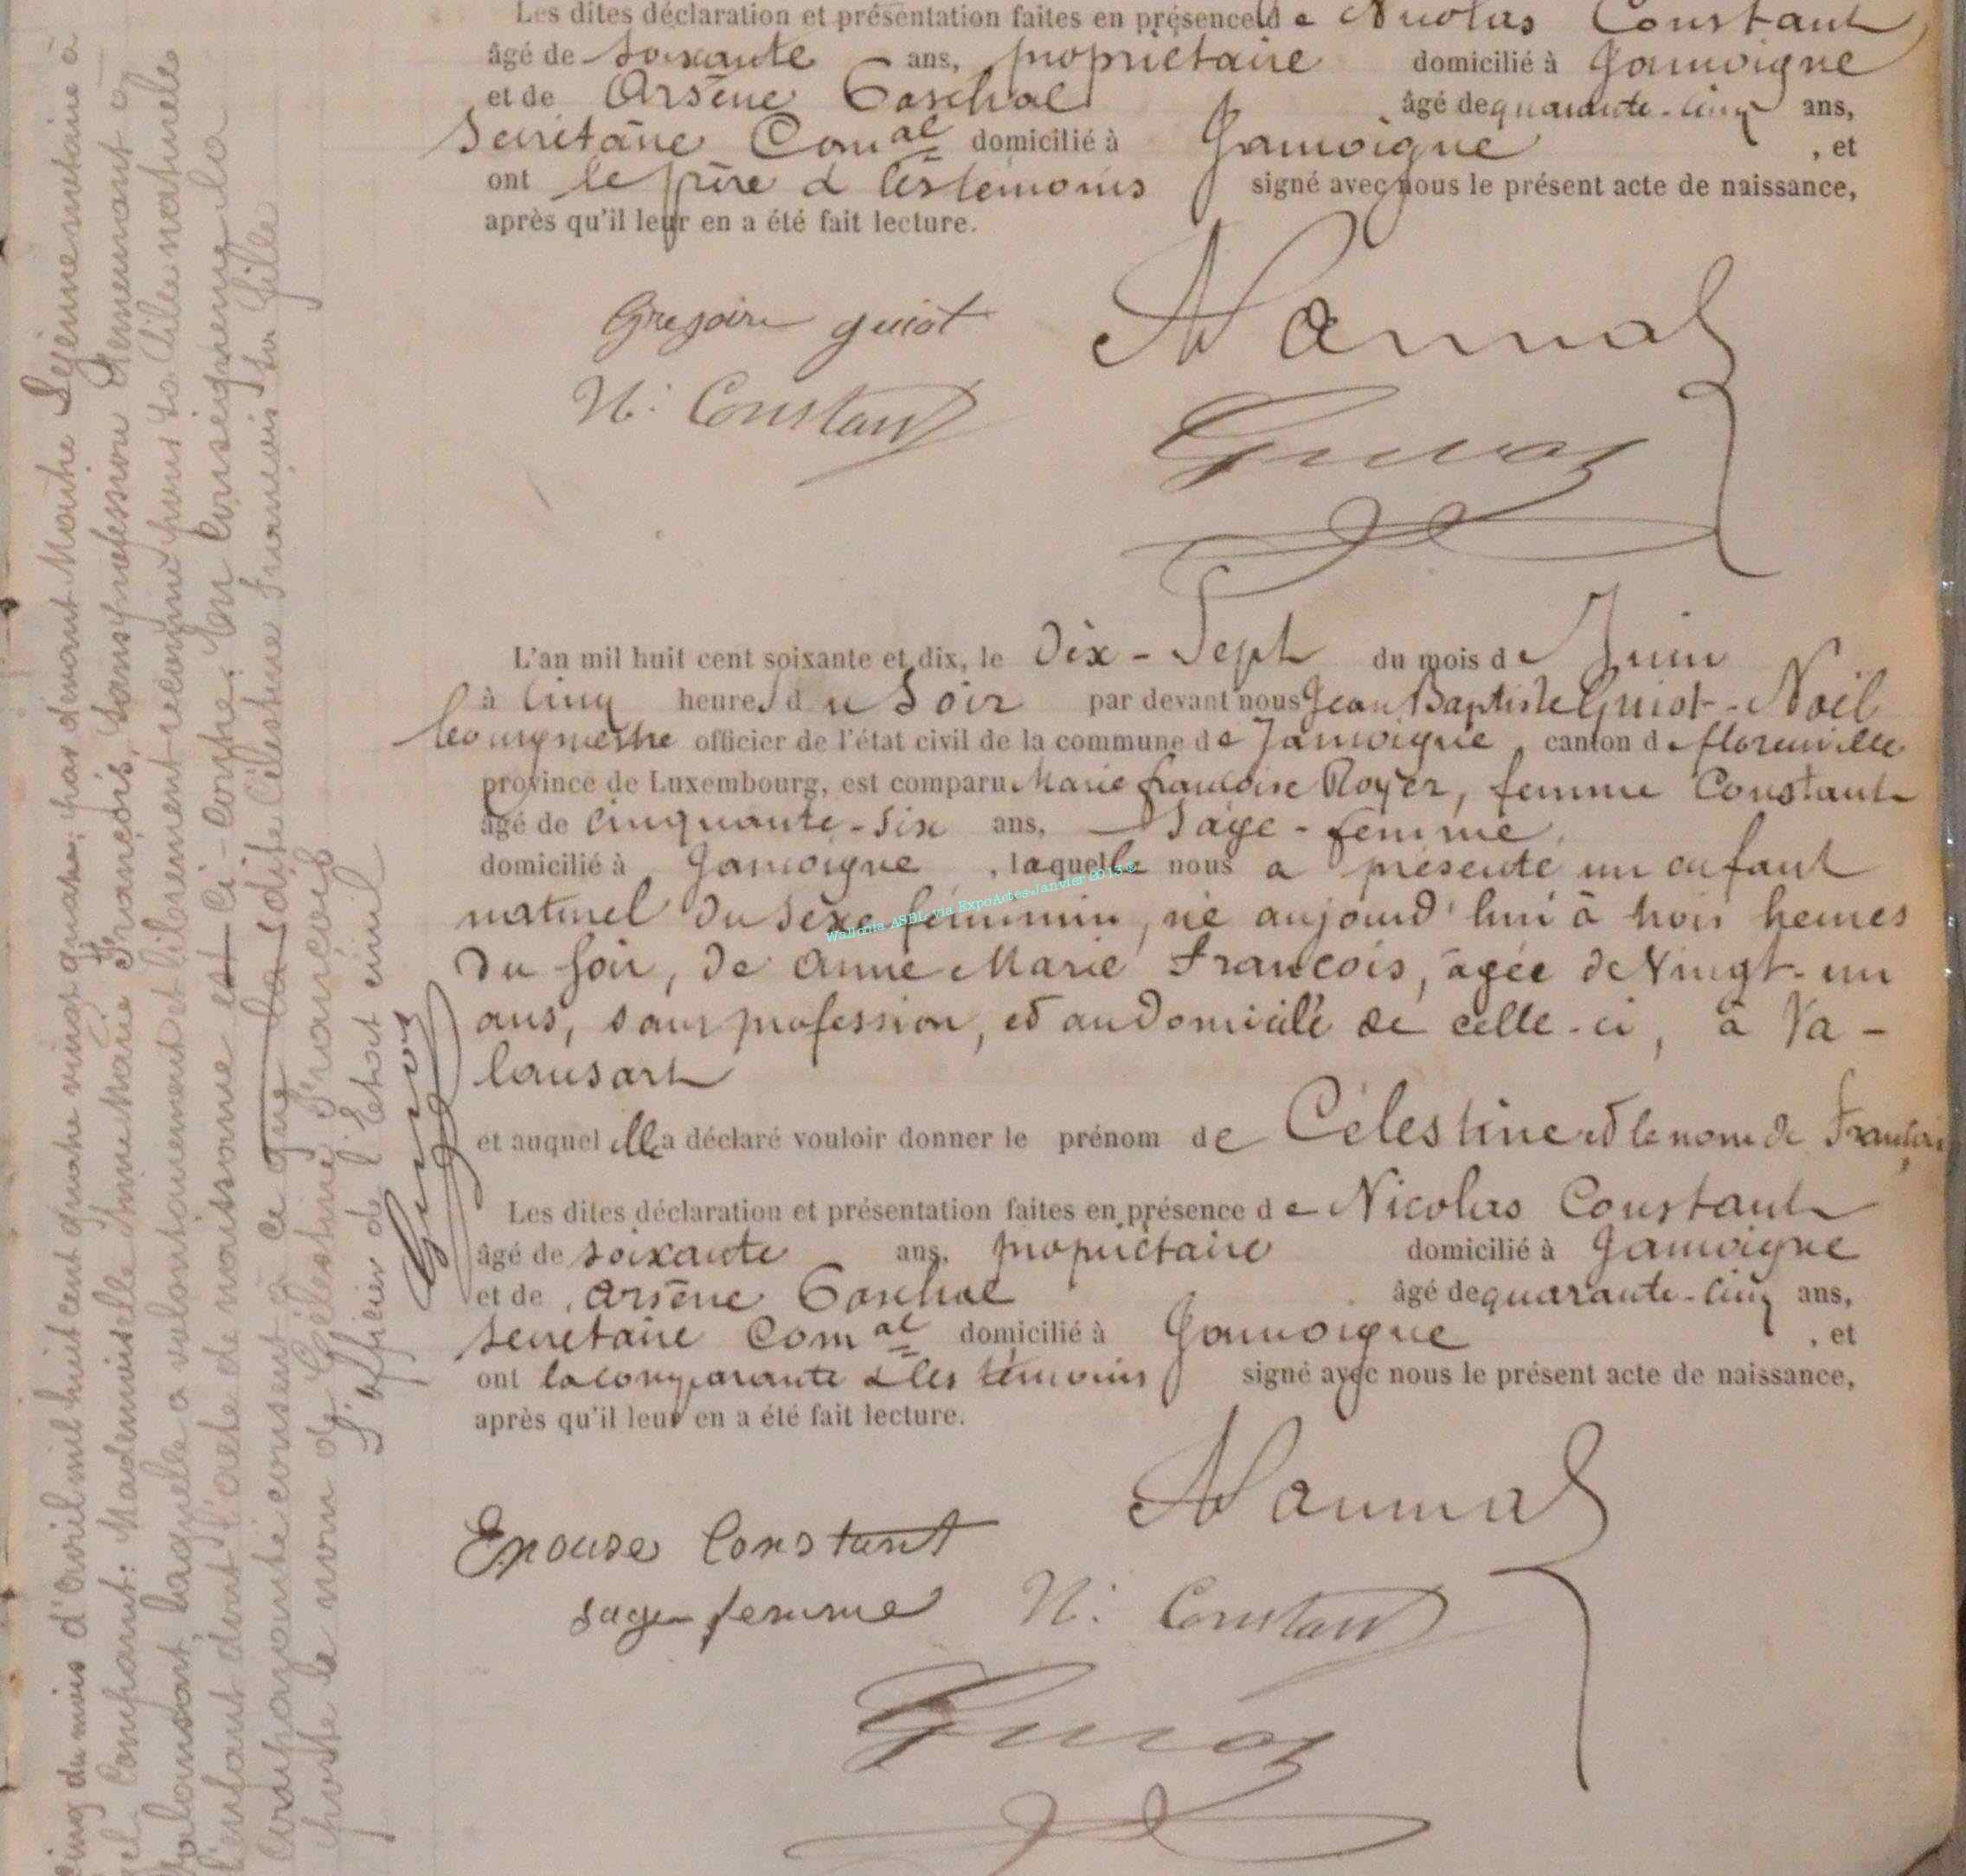 Les dites déclaration et présentation faites en présence de Nicolas Constant
âgé de soixante ans, propriétaire domicilié à Jamoigne
et de Arsène Paschal âgé de quarante-cinq ans,
Secrétaire Comal domicilié à Jamoigne , et
ont le père & les témoins signé avec nous le présent acte de naissance,
après qu'il leur en a été fait lecture.
Gregoire guiot
N. Constant
L'an mil huit cent soixante et dix, le Dix-Sept du mois de Juin
à Cinq heures du Soir par devant nous Jean Baptiste Guiot-Noël
bourgmestre officier de l'état civil de la commune de Jamoigne, canton de florenville
province de Luxembourg, est comparu Marie françoise Royer, femme Constant
âgé de Cinquante-Six ans, Sage-femme,
domicilié à Jamoigne , laquelle nous a présenté un enfant
Wallonia ASBL via ExpoActes Janvier 2013 ©
naturel du sexe féminin, né aujourd'hui à trois heures
du soir, de Anne Marie François, âgée de Vingt-un
ans, sans profession, et au domicile de celle-ci, à Va-
lansart
et auquel elle a déclaré vouloir donner le prénom de Célestine et le nom de François
Les dites déclaration et présentation faites en présence de Nicolas Constant
âgé de soixante ans, propriétaire domicilié à Jamoigne
et de Arsène Paschal âgé de quarante-cinq ans,
secrétaire Comal domicilié à Jamoigne , et
ont la comparante & les témoins signé avec nous le présent acte de naissance,
après qu'il leur en a été fait lecture.
Epouse Constant
sage femme N. Constant
Guiot
cinq du mois d'avril mil huit cent quatre vingt quatre; par devant Maître Lejeune notaire à
comparant: Mademoiselle Anne Marie François, sans profession demeurant à
Valansart, laquelle a volontairement et librement reconnu pour sa fille naturelle
l'enfant dont l'acte de naissance est ci-contre. En conséquence la
comparante consent à ce que la sadite Célestine François sa fille
porte le nom de Célestine François
L'officier de l'état civil